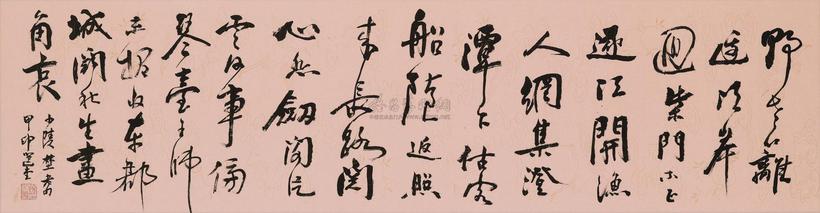 野老離
邊江岸
迴柴門不正
逐江開漁
人網集澄
潭下估客
船隨返照
來長路関
心悲劍閣片
雲何事傍
琴臺王師
未報收東郡
城闕秋生畫
角哀
少陵埜老
甲申